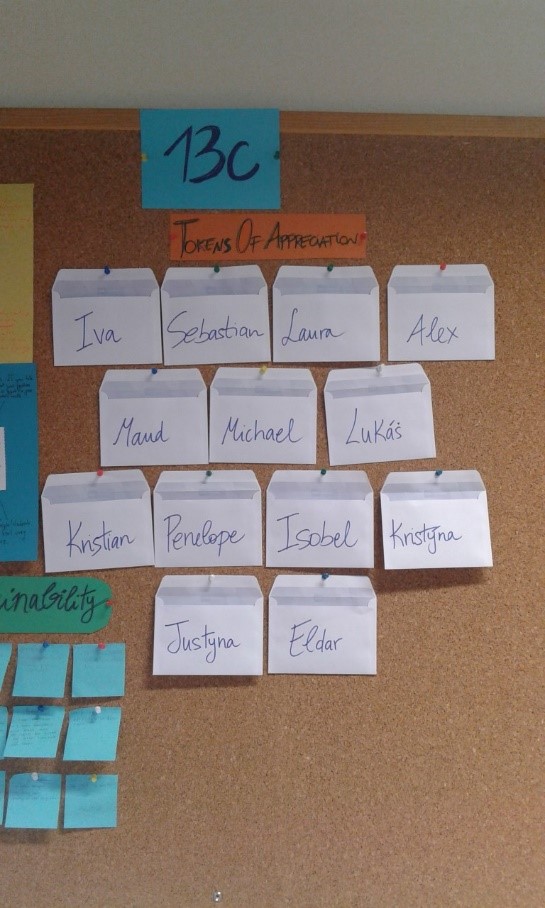 13c
TOKENS OF APPRECIATION
Iva
Sebastian
Laura
Alex
Maud
Michael
Lukáš
Kristian
Penelope
Isobel
Kristýna
Justyna
Eldar
inability